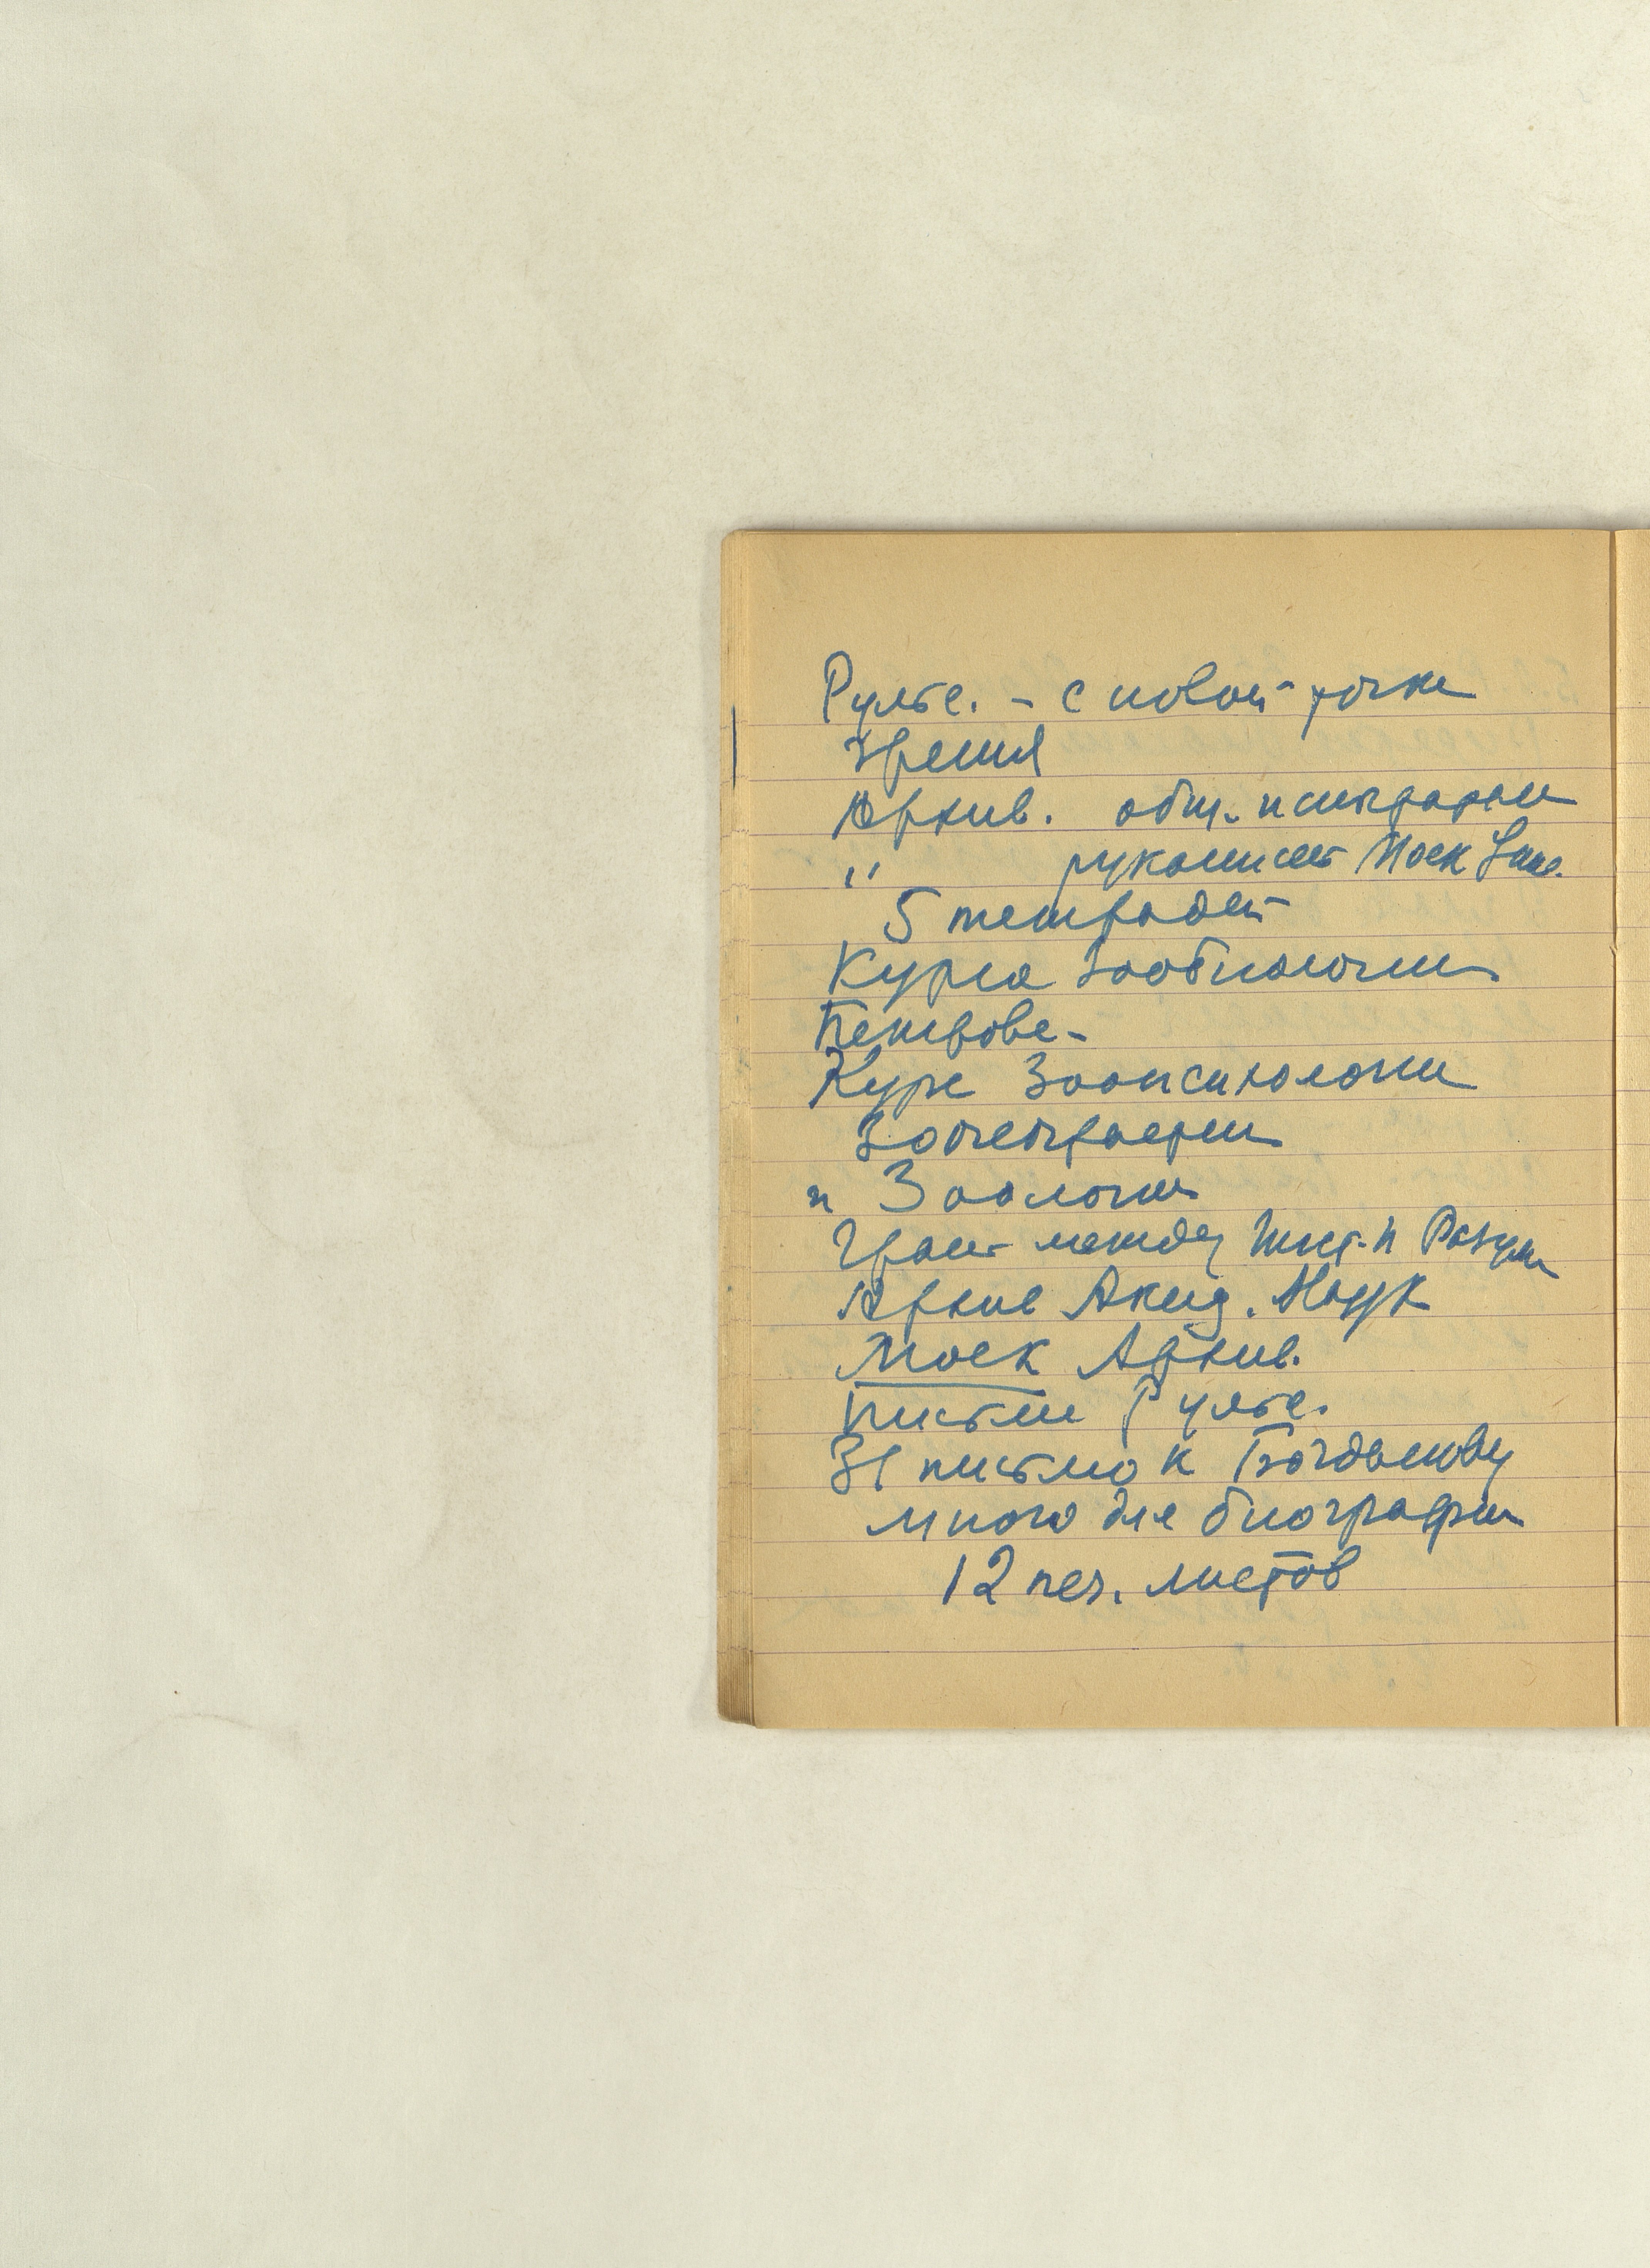 Рулье. – с новой точки
зрения
Архив. общ.
" рукописей Моск
5 тетрадей
Курса Зообиологии
Петрове –
Курс Зоопсихологии
Зоогеографии
и Зоологии
Грань между Инст. и Разум
Архив Акад. Наук
Моск Архив.
письма Рулье.
31 письмо к Богданову
много для биографии
12 печ. листов